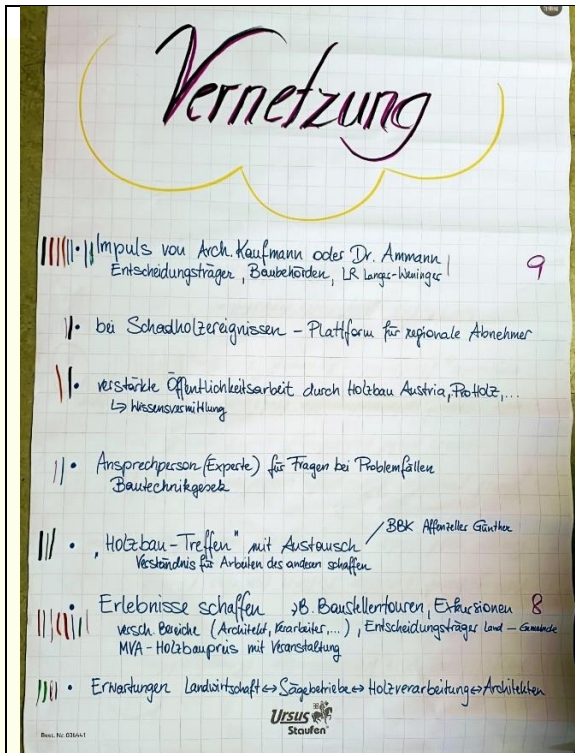 Vernetzung
• Impuls von Arch. Kaufmann oder Dr. Ammann
Entscheidungsträger, Baubehörden, LR Langer-Weninger
9
• bei Schadholzereignissen – Plattform für regionale Abnehmer
• verstärkte Öffentlichkeitsarbeit durch Holzbau Austria, ProHolz,...
↳ Wissensvermittlung
• Ansprechperson (Experte) für Fragen bei Problemfällen
Bautechnikgesetz
• „Holzbau-Treffen" mit Austausch
BBK Affenzeller Günther
Verständnis für Arbeiten des anderen schaffen
• Erlebnisse schaffen z.B. Baustellentouren, Exkursionen 8
versch. Bereiche (Architekt, Verarbeiter,...), Entscheidungsträger Land – Gemeinde
MVA-Holzbaupreis mit Veranstaltung
• Erwartungen Landwirtschaft ↔ Sägebetriebe ↔ Holzverarbeitung ↔ Architekten
Ursus
Staufen
Best. Nr. 036441